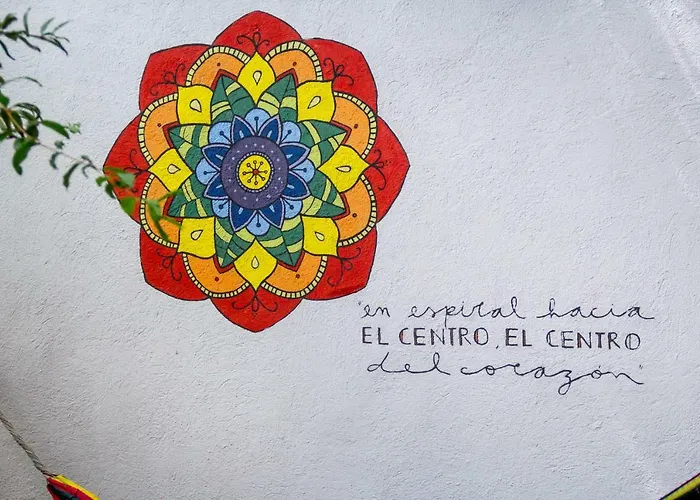 "en espiral hacia
EL CENTRO, EL CENTRO
del corazón"